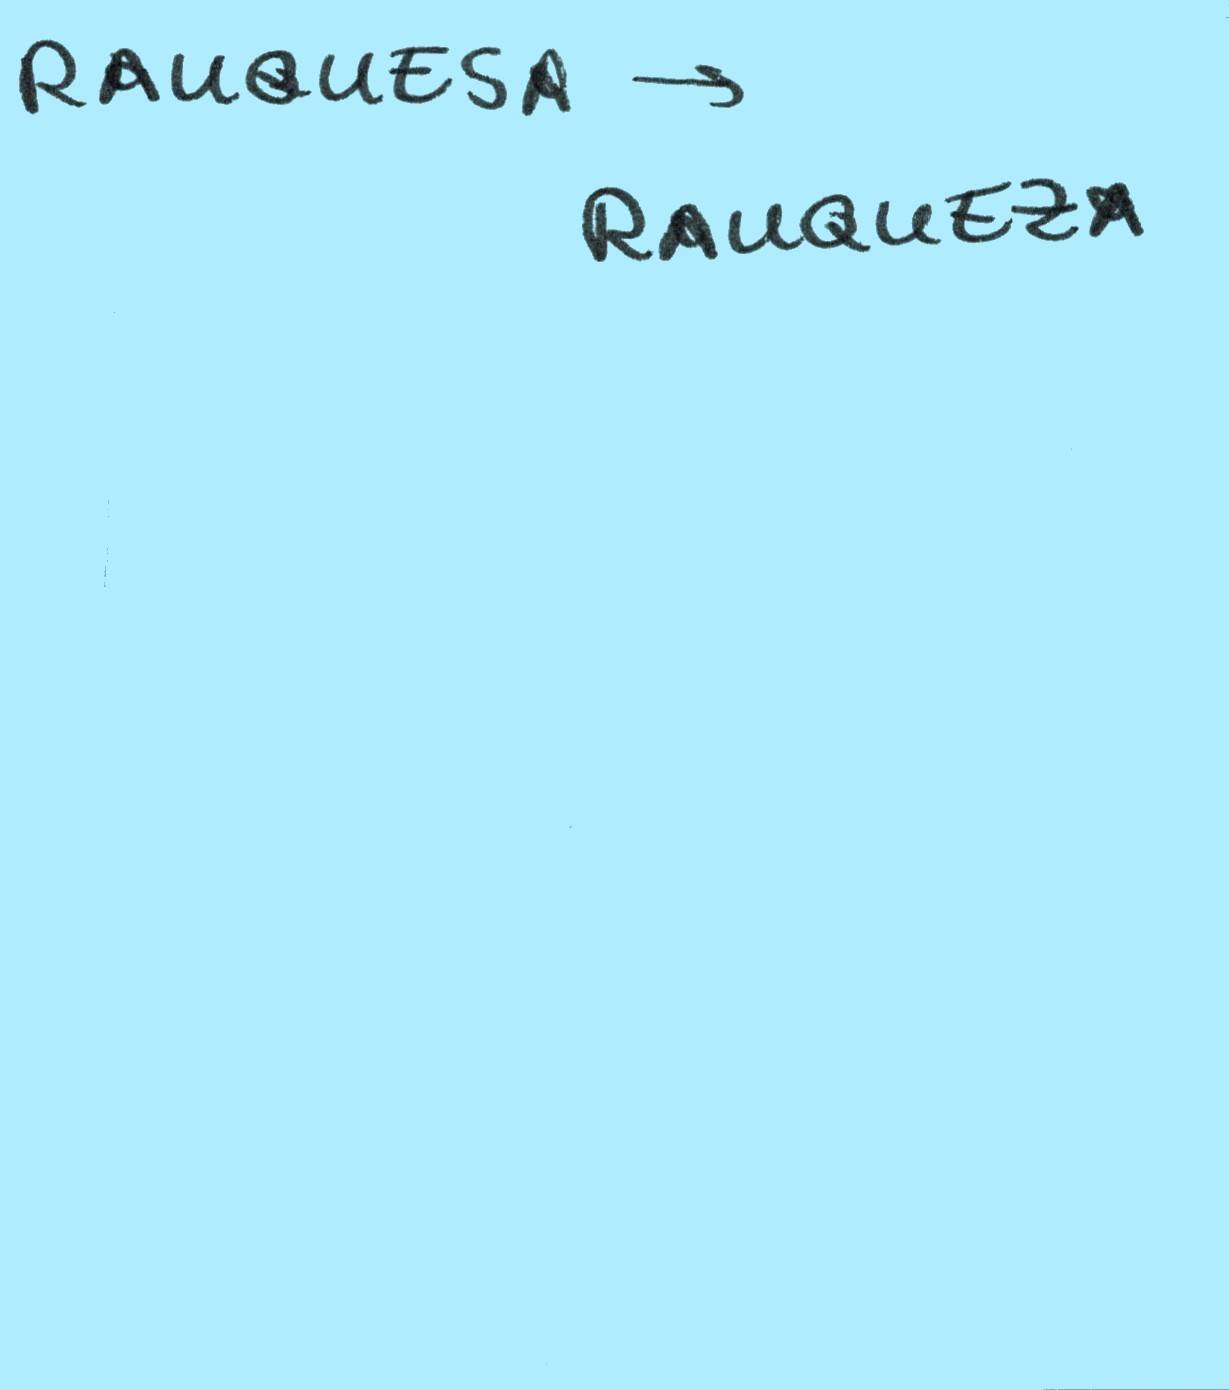 RAUQUESA →
RAUQUEZA